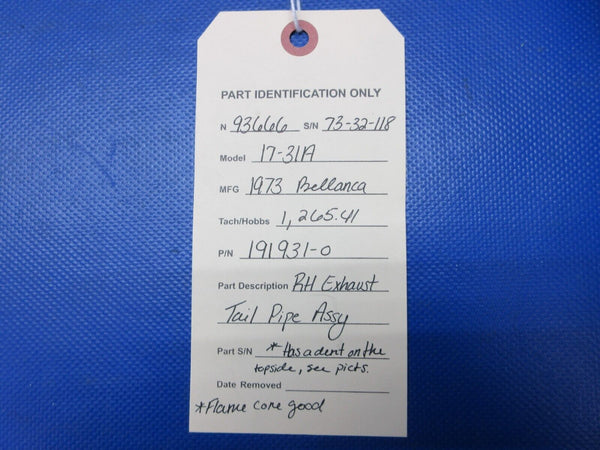 PART IDENTIFICATION ONLY
N 93666 S/N 73-32-118
Model 17-31A
MFG 1973 Bellanca
Tach/Hobbs 1,265.41
P/N 191931-0
Part Description RH Exhaust
Tail Pipe Assy
Part S/N *Has a dent on the
topside, see picts.
Date Removed
*Flame cone good